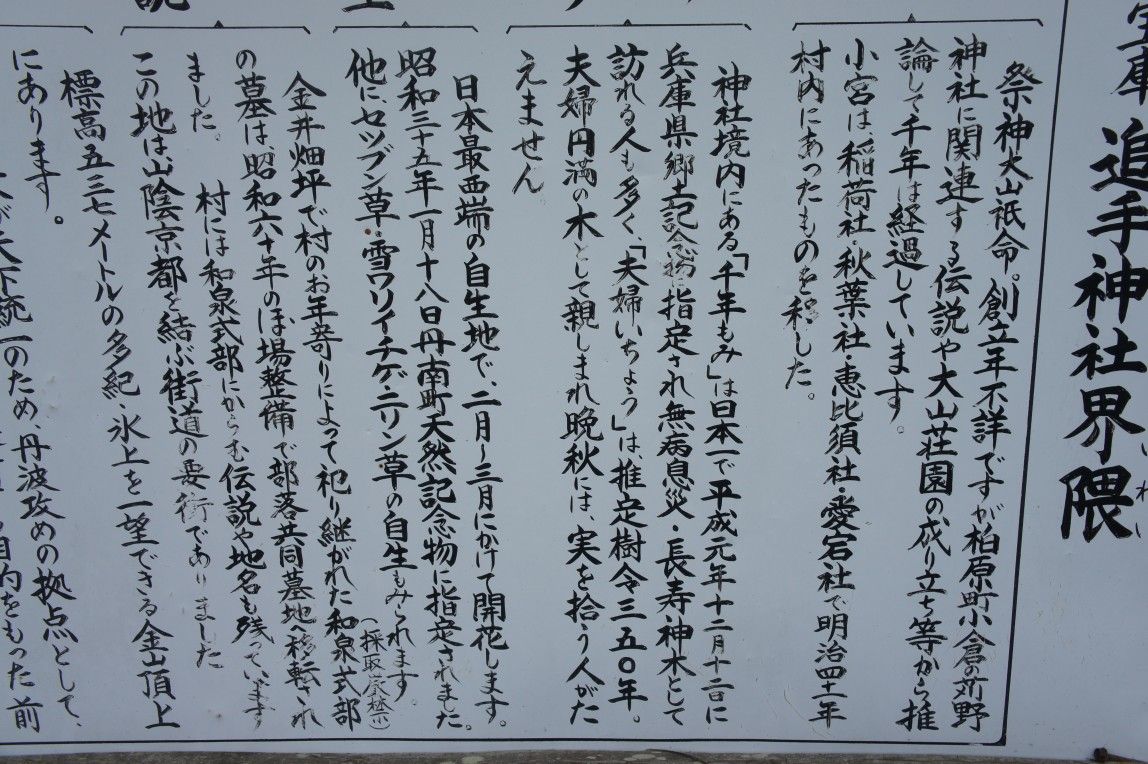 追手神社界隈
祭神大山祇命。創立年不詳ですが柏原町小倉の苅野
神社に関連する伝説や大山荘園の成り立ち等から推
論して千年は経過しています。
小宮は、稲荷社・秋葉社・恵比須社・愛宕社で明治四十一年
村内にあったものを移した。
神社境内にある「千年もみ」は日本一で平成元年十二月十二日に
兵庫県郷土記念物に指定され無病息災・長寿神木として
訪れる人も多く、「夫婦いちょう」は推定樹令三五〇年。
夫婦円満の木として親しまれ晩秋には、実を拾う人がた
えません。
日本最西端の自生地で、二月〜三月にかけて開花します。
昭和三十五年一月十八日丹南町天然記念物に指定されました。
他に、セツブン草・雪ワリイチゲ・ニリン草の自生もみられます。
(採取厳禁)
金井畑坪で村のお年寄りによって祀り継がれた和泉式部
の墓は、昭和六十年のほ場整備で部落共同墓地へ移転され
ました。 村には和泉式部にからむ伝説や地名も残っています
この地は、山陰京都を結ぶ街道の要衝でありました
標高五三七メートルの多紀・氷上を一望できる金山頂上
にあります。
天下統一のため、丹波攻めの拠点として、
目的をもった前